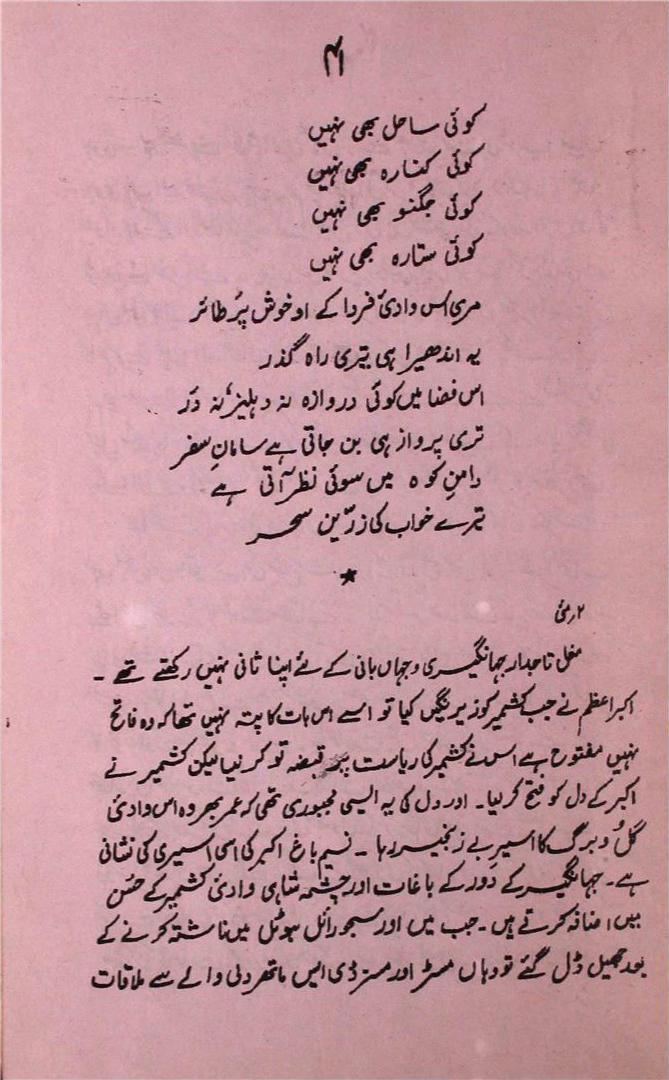 ۴۱
کوئی ساحل بھی نہیں
کوئی کنارہ بھی نہیں
کوئی جگنو بھی نہیں
کوئی ستارہ بھی نہیں
مری اس وادیٔ فردا کے او خوش پر طائر
یہ اندھیرا ہی تیری راہ گذر
اس فضا میں کوئی دروازہ نہ دہلیز، نہ در
تری پرواز ہی بن جاتی ہے سامانِ سفر
دامنِ کوہ میں سوئی نظر آتی ہے
تیرے خواب کی زرّین سحر
★
۲؍ مئی
مغل تاجدار جہانگیری و جہاں بانی کے لئے اپنا ثانی نہیں رکھتے تھے ۔
اکبر اعظم نے جب کشمیر کو زیر نگیں کیا تو اسے اس بات کا پتہ نہیں تھا کہ وہ فاتح
نہیں مفتوح ہے اس نے کشمیر کی ریاست پر قبضہ تو کر لیا لیکن کشمیر نے
اکبر کے دل کو فتح کر لیا ۔ اور دل کی یہ ایسی مجبوری تھی کہ عمر بھر وہ اس وادیٔ
گل و برگ کا اسیرِ بے زنجیر رہا ۔ نسیم باغ اکبر کی اسی اسیری کی نشانی
ہے ۔ جہانگیر کے دور کے باغات اور چشمہ شاہی وادیٔ کشمیر کے حسن
میں اضافہ کرتے ہیں ۔ جب میں اور سجو رائل ہوٹل میں ناشتہ کرنے کے
بعد جھیل ڈل گئے تو وہاں مسٹر اور مسز ڈی ایس ماتھر دلی والے سے ملاقات